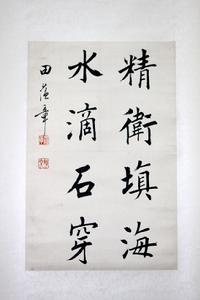 精衛填海
水滴石穿
田蘊章